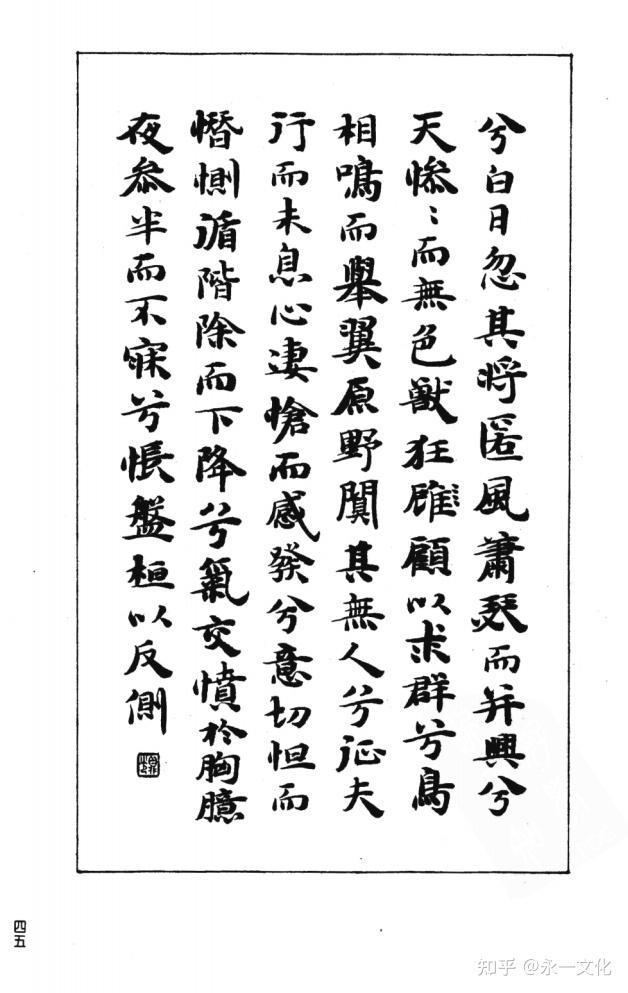 兮白日忽其将匿風蕭瑟而并興兮
天惨〻而無色獸狂雎顧以求群兮鳥
相鳴而舉翼原野闃其無人兮征夫
行而未息心凄愴而感發兮意切怛而
憯惻循階除而下降兮氣交憤於胸臆
夜叅半而不寐兮悵盤桓以反側
四五
知乎 @永一文化